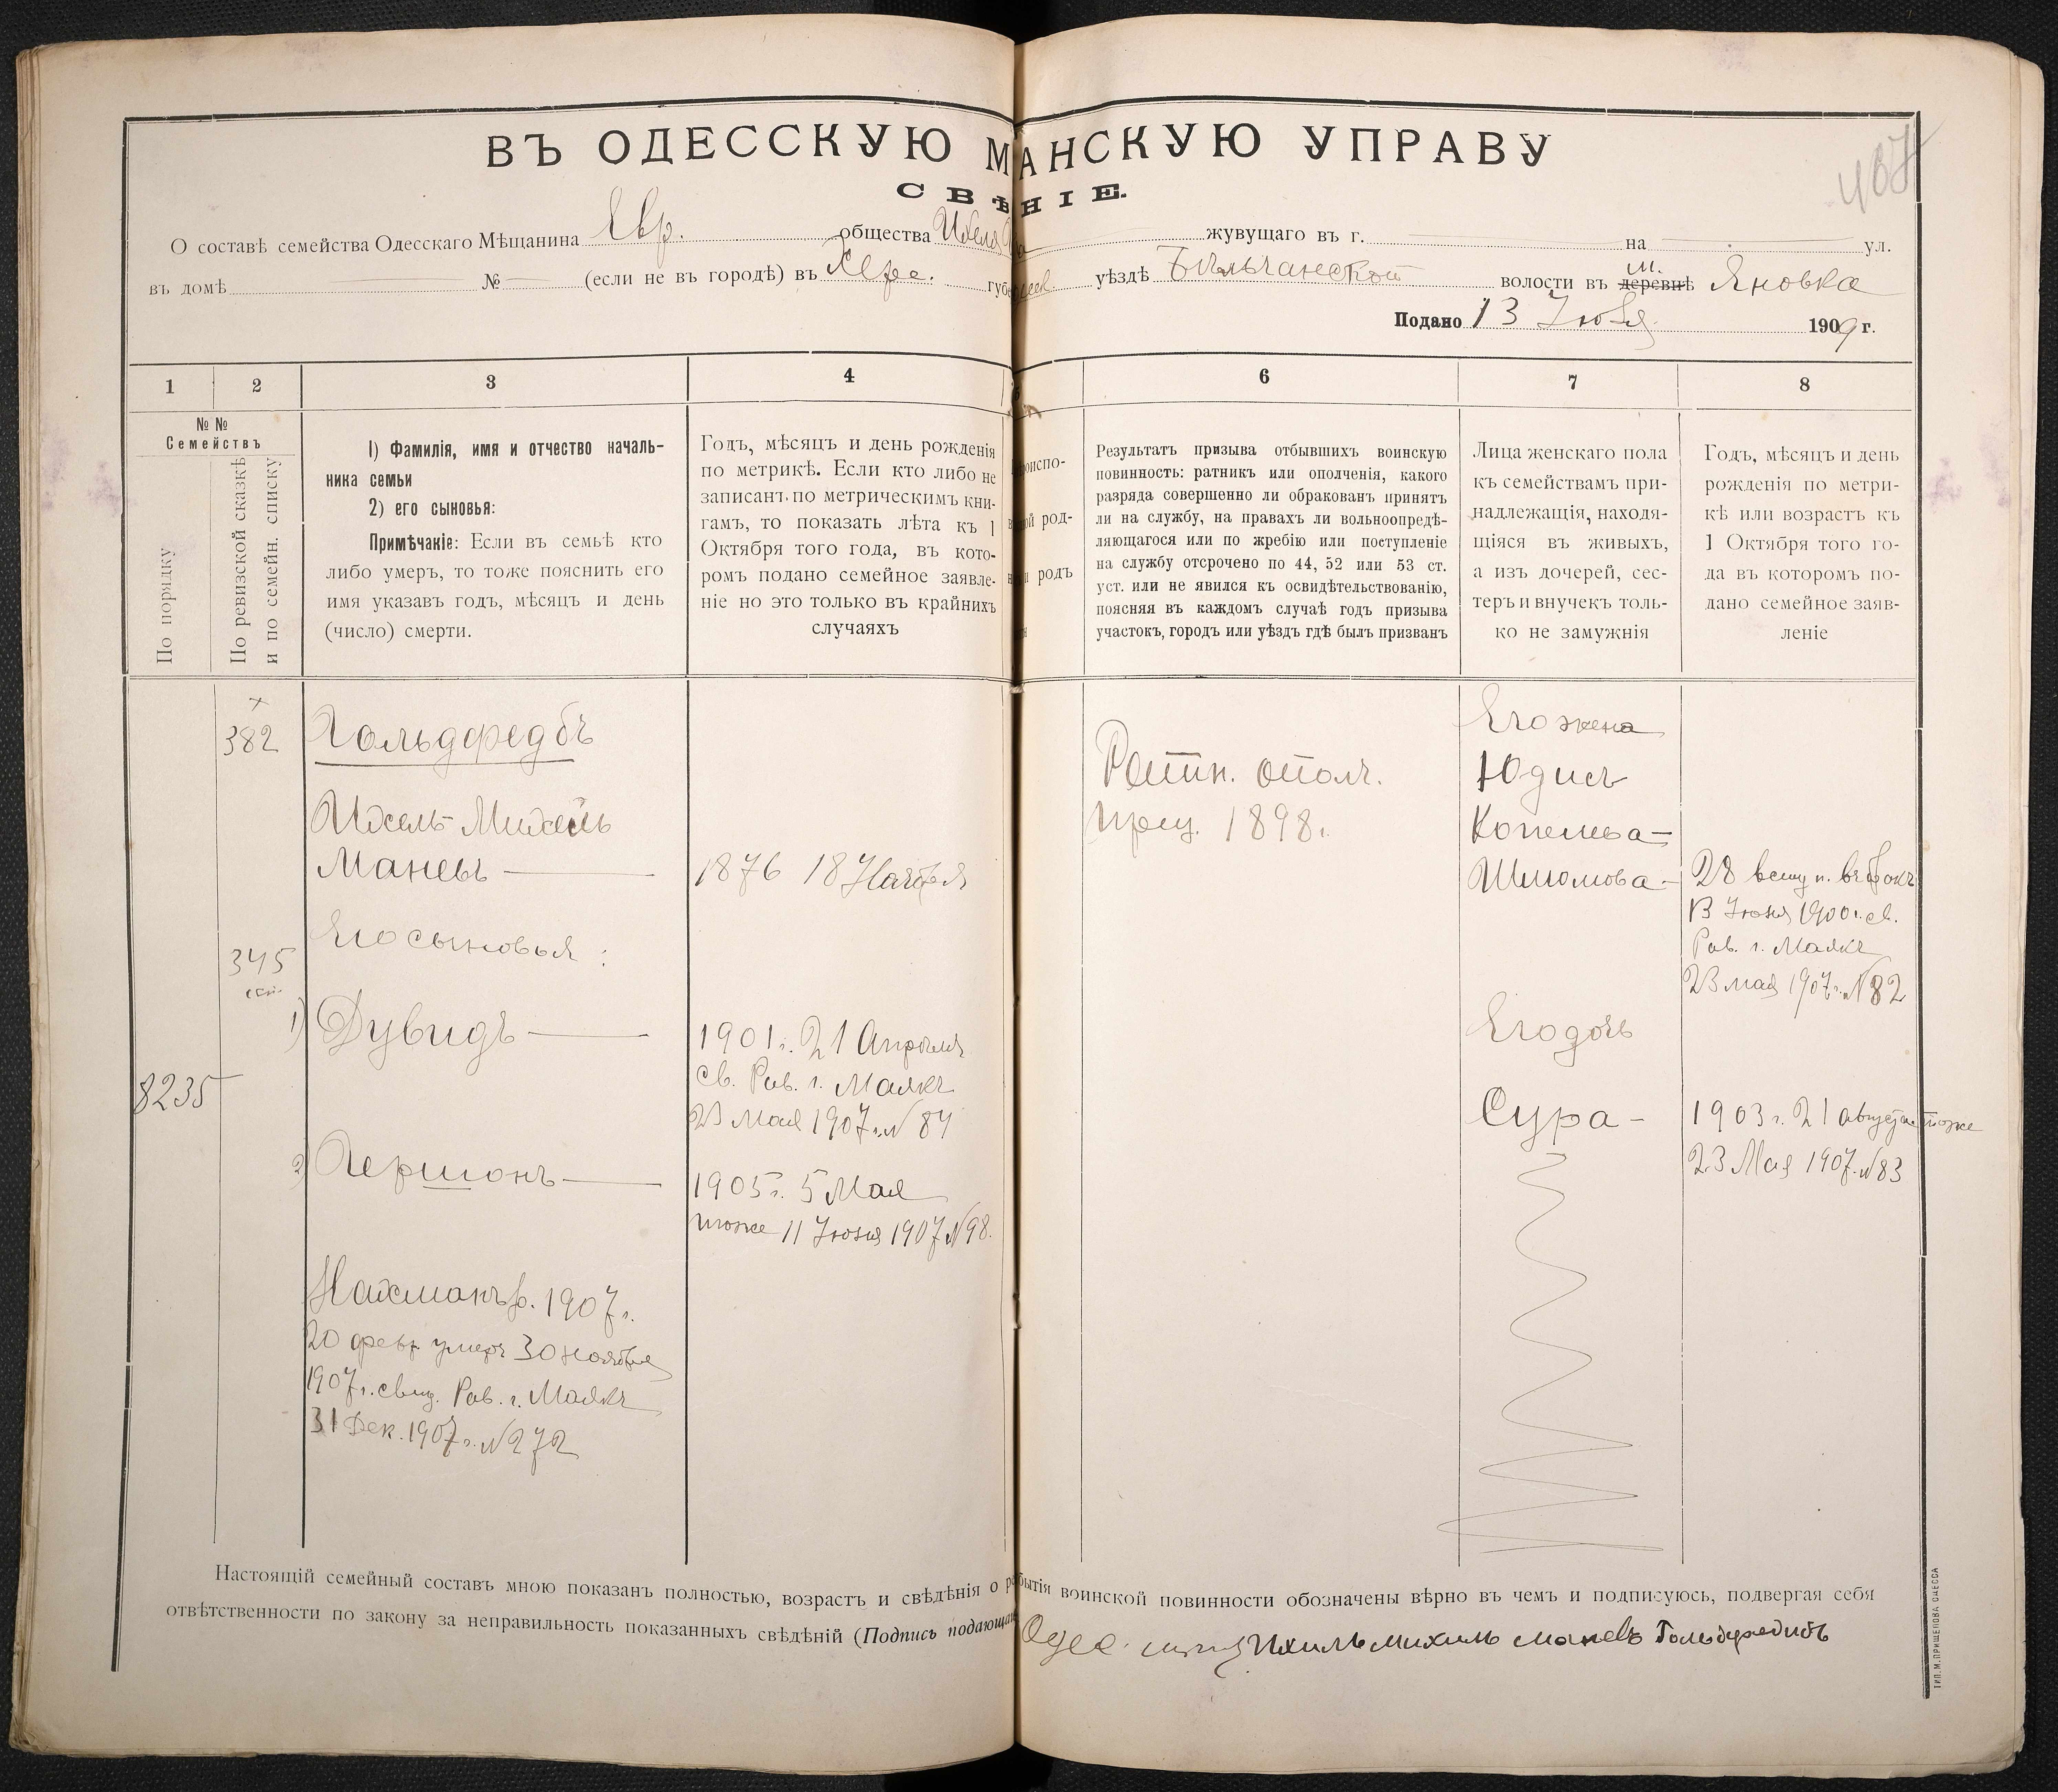 ВЪ ОДЕССКУЮ М АНСКУЮ УПРАВУ
СВѢ НІЕ.
467
О составѣ семейства Одесскаго Мѣщанина Евр. общества Ихеля жувущаго въ г. на ул.
въ домѣ № (если не въ городѣ) въ Херс. губ уѣздѣ волости въ деревнѣ м. Яновка
Подано 13 Іюля 1909 г.
1 2 3 4 5 6 7 8
№ №
Семействъ
По порядку
По ревизской сказкѣ
и по семейн. списку
1) Фамилія, имя и отчество началь-
ника семьи
2) его сыновья:
Примѣчакіе: Если въ семьѣ кто
либо умеръ, то тоже пояснить его
имя указавъ годъ, мѣсяцъ и день
(число) смерти.
Годъ, мѣсяцъ и день рожденія
по метрикѣ. Если кто либо не
записанъ по метрическимъ кни-
гамъ, то показать лѣта къ 1
Октября того года, въ кото-
ромъ подано семейное заявле-
ніе но это только въ крайнихъ
случаяхъ
оиспо-
ой род-
и родъ
Результатъ призыва отбывшихъ воинскую
повинность: ратникъ или ополченія, какого
разряда совершенно ли обракованъ принятъ
ли на службу, на правахъ ли вольноопредѣ-
ляющагося или по жребію или поступленіе
на службу отсрочено по 44, 52 или 53 ст.
уст. или не явился къ освидѣтельствованію,
поясняя въ каждомъ случаѣ годъ призыва
участокъ, городъ или уѣздъ гдѣ былъ призванъ
Лица женскаго пола
къ семействамъ при-
надлежащія, находя-
щіяся въ живыхъ,
а изъ дочерей, сес-
теръ и внучекъ толь-
ко не замужнія
Годъ, мѣсяцъ и день
рожденія по метри-
кѣ или возрастъ къ
1 Октября того го-
да въ которомъ по-
дано семейное заяв-
леніе
382
Гольдфедбъ
Ихель-Михель
Маневъ
1876 18 Ноября
Его сыновья:
345
1) Дувидъ
1901 г. 21 Апрѣля
св. Рав. г. Маякъ
23 Мая 1907 г. № 84
8235
2) Гершонъ
1905 г. 5 Мая
тоже 11 Іюня 1907 № 98.
Нахманъ р. 1907 г.
20 февр. умеръ 30 ноября
1907 г. свид. Рав. г. Маякъ
31 Дек. 1907 г. № 272
Ратн. ополч.
1898 г.
Его жена
Юдись
Копелева-
Шлюмова-
28
13 Іюня 1900 г. св.
Рав. г. Маякъ
23 мая 1907 г. № 82
Его дочь
Сура-
1903 г. 21 августа тоже
23 Мая 1907 г. № 83
Настоящій семейный составъ мною показанъ полностью, возрастъ и свѣдѣнія о бытія воинской повинности обозначены вѣрно въ чемъ и подписуюсь, подвергая себя
отвѣтственности по закону за неправильность показанныхъ свѣдѣній (Подпись подающ Одес. Ихиль Михиль Маневъ Гольдфедибъ
ТИП. М. ПРИЩЕПОВА ОДЕССА